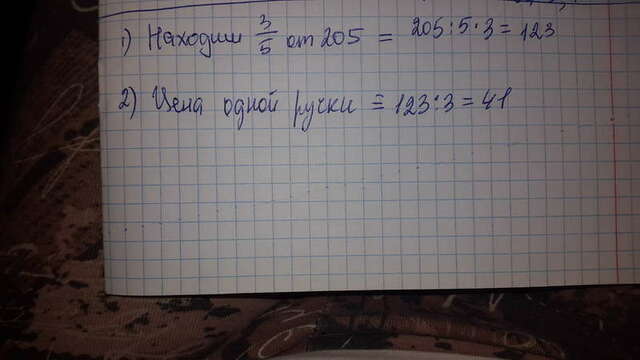 1) Находим 3/5 от 205 = 205:5·3 = 123
2) Цена одной ручки = 123:3 = 41